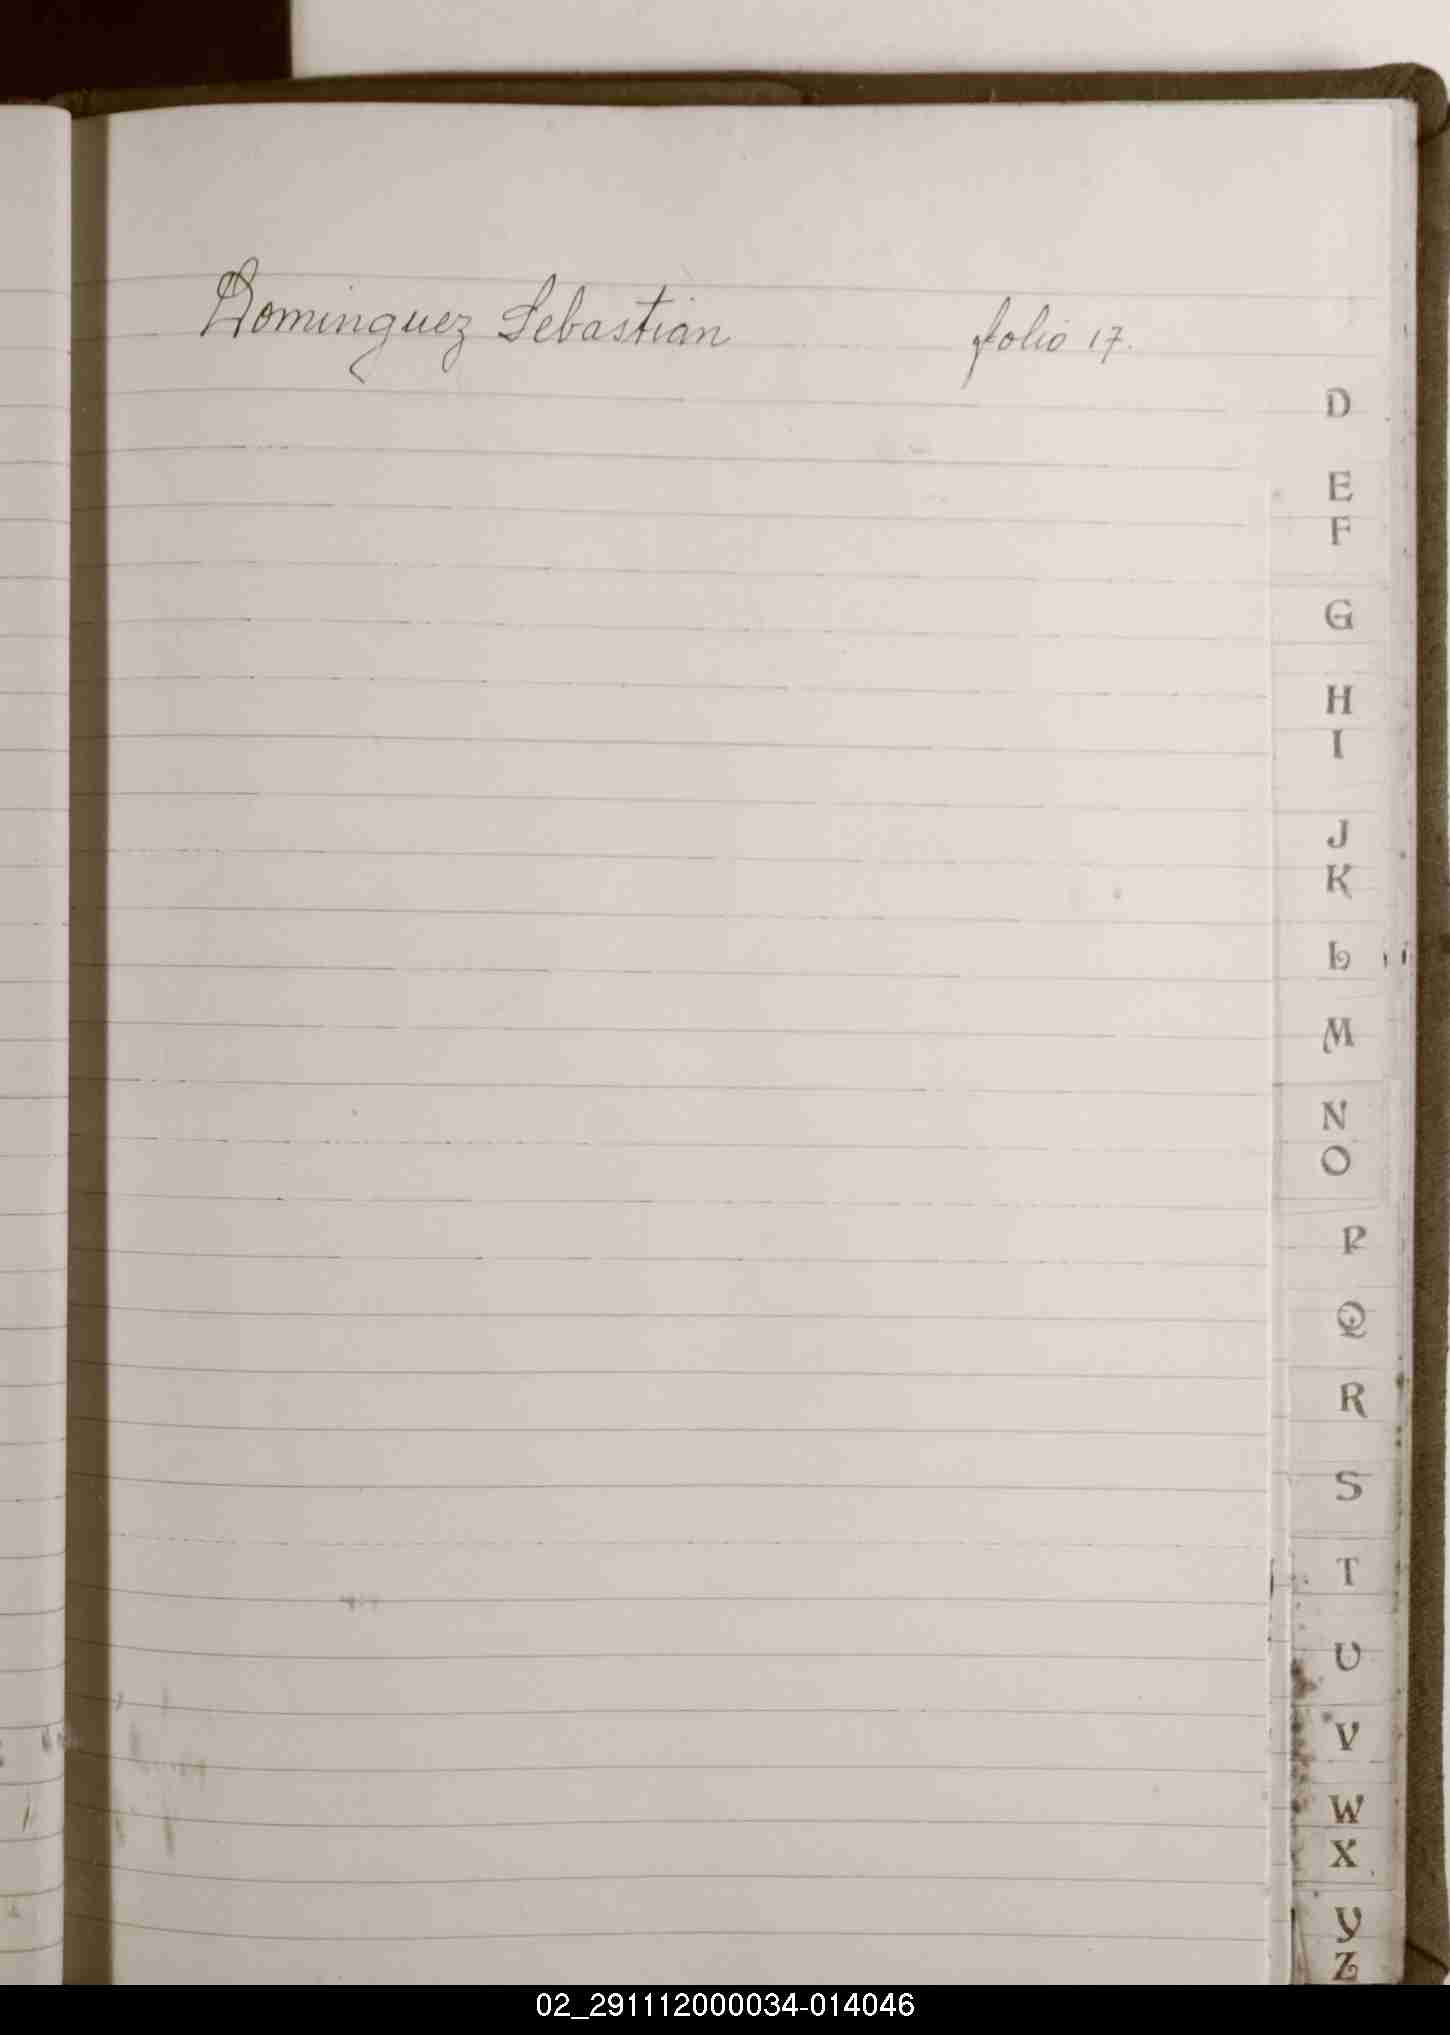 Dominguez Sebastian folio 17.
D
E
F
G
H
I
J
K
L
M
N
O
P
Q
R
S
T
U
V
W
X
Y
Z
02_291112000034-014046